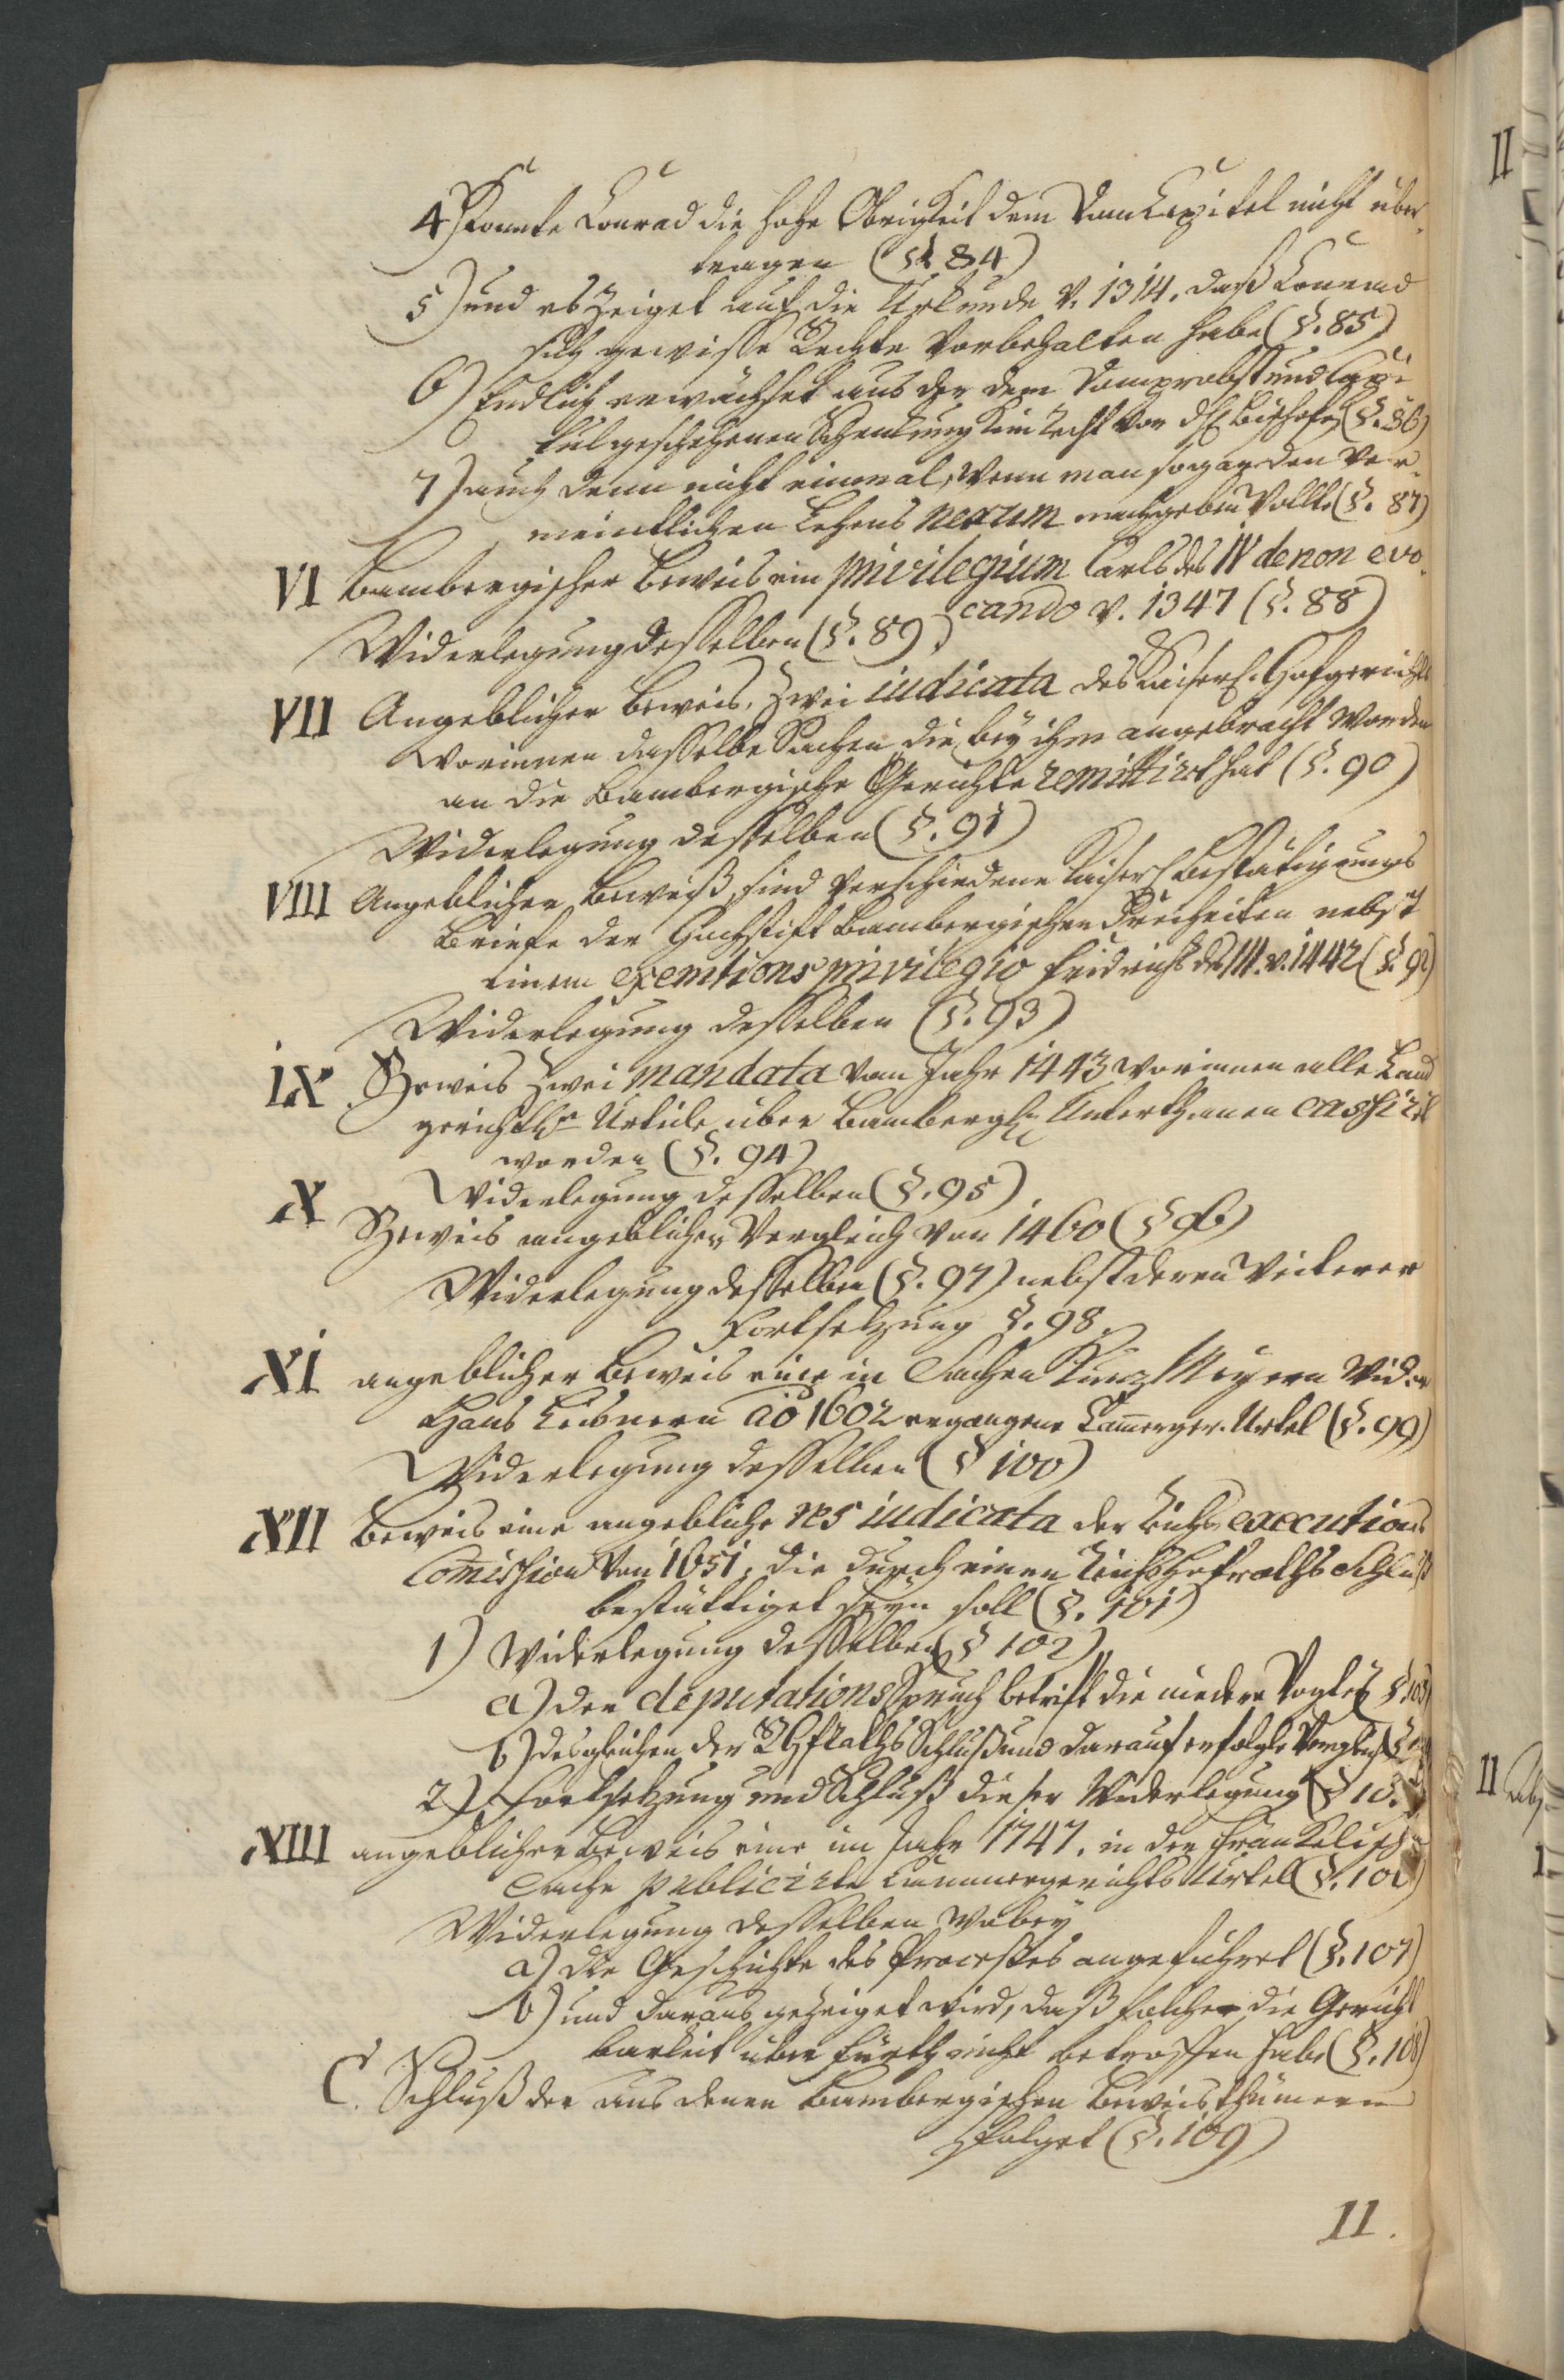 4) konnte Conrad die hohe Obrigkeit dem DomCapitel nicht über-
tragen (§ 84)
5) und es zeiget auch die Urkunde v. 1314. daß Conrad
sich gewisse Rechte vorbehalten habe (§. 85)
6) Endlich erwächset aus der dem Domprobst und Capi-
tul geschehenen Schenkung kein Recht vor dH Bischofen (§. 86)
7) auch denn nicht einmal, wenn man sogar den ver-
meintlichen Lehens nexum nachgeben wollte (§. 87)
VI Bambergischer Beweis ein privilegium Carls des IV de non evo-
cando v. 1347 (§. 88)
Widerlegung desselben (§. 89)
VII Angeblicher Beweis, zwei iudicata des Kaiserl. Hofgerichts
worinnen dasselbe Sachen die bey ihm angebracht worden
an die Bambergische Gerichte remittirt hat (§. 90)
Widerlegung desselben (§. 91)
VIII Angeblicher Beweiß sind verschiedene Kaiserl. Bestätigungs
Briefe der Hochstift Bambergischen Freiheiten nebst
einem exemtions privilegio Fridrichs des III. v. 1442 (§. 92)
Widerlegung desselben (§. 93)
IX Beweis zwei mandata vom Jahr 1443 worinnen alle Land
gerichtl. Urteile über Bambergl. Unterthanen cassirt
worden (§. 94)
Widerlegung desselben (§. 95)
X Beweis angeblicher Vergleich von 1460 (§ 96)
Widerlegung desselben (§. 97) nebst deren weiterer
Fortsetzung §. 98.
XI angeblicher Beweis eine in Sachen Kunz Mayern wider
Hans Leibnern ao 1602 ergangene Cam̄erger. Urtel (§. 99)
Widerlegung desselben (§ 100)
XII Beweis eine angebliche res iudicata der Reichs executions
Com̄ission von 1651. die durch einen Reichshofraths Schluß
bestättiget seyn soll (§. 101)
1) Widerlegung desselben (§ 102)
a) der deputations Spruch betrift die niedere Vogtey § 103)
b) desgleichen der RHfraths Schluß und darauf erfolgte Vergleich (§
2) Fortsetzung und Schluß dieser Widerlegung (§ 10
XIII angeblicher Beweis eine im Jahr 1747. in der Fränkelischen
Sache publicirte Cammergerichts Urtel (§. 106)
Widerlegung desselben wobey
a) die Geschichte des Processes angeführet (§. 107)
b) und daraus gezeiget wird, daß solche die Gericht
barkeit über Fürth nicht betroffen habe (§. 108)
C. Schluß der aus denen Bambergischen Beweisthümern
folget (§. 109)
II.